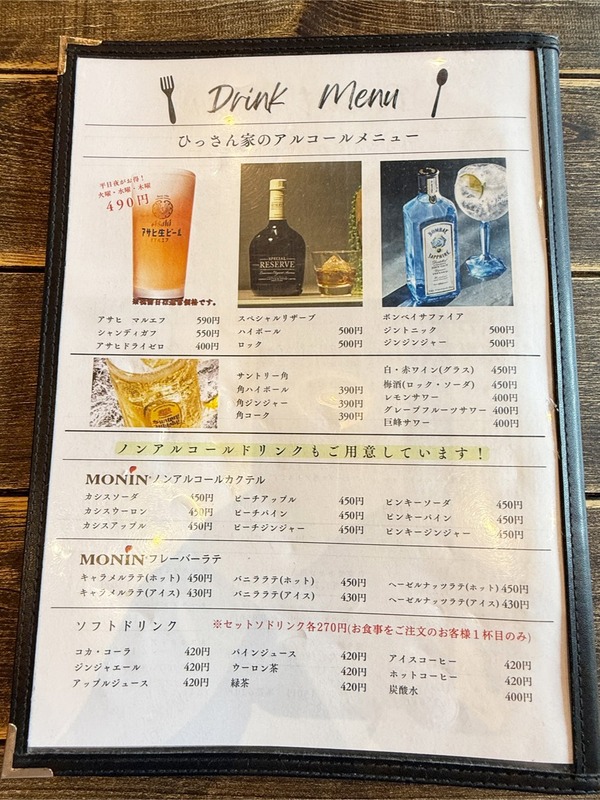 Drink Menu
ひっさん家のアルコールメニュー
平日夜がお得!
火曜・水曜・木曜
490円
Asahi
アサヒ生ビール
SPECIAL
RESERVE
BOMBAY
SAPPHIRE
アサヒ マルエフ 590円
シャンディガフ 550円
アサヒドライゼロ 400円
スペシャルリザーブ
ハイボール 500円
ロック 500円
ボンベイサファイア
ジントニック 500円
ジンジンジャー 500円
サントリー角
角ハイボール 390円
角ジンジャー 390円
角コーク 390円
白・赤ワイン(グラス) 450円
梅酒(ロック・ソーダ) 450円
レモンサワー 400円
グレープフルーツサワー 400円
巨峰サワー 400円
ノンアルコールドリンクもご用意しています!
MONIN ノンアルコールカクテル
カシスソーダ 450円
カシスウーロン 450円
カシスアップル 450円
ピーチアップル 450円
ピーチパイン 450円
ピーチジンジャー 450円
ピンキーソーダ 450円
ピンキーパイン 450円
ピンキージンジャー 450円
MONIN フレーバーラテ
キャラメルラテ(ホット) 450円
キャラメルラテ(アイス) 430円
バニララテ(ホット) 450円
バニララテ(アイス) 430円
ヘーゼルナッツラテ(ホット) 450円
ヘーゼルナッツラテ(アイス) 430円
ソフトドリンク ※セットソドリンク各270円(お食事をご注文のお客様1杯目のみ)
コカ・コーラ 420円
ジンジャエール 420円
アップルジュース 420円
パインジュース 420円
ウーロン茶 420円
緑茶 420円
アイスコーヒー 420円
ホットコーヒー 420円
炭酸水 400円